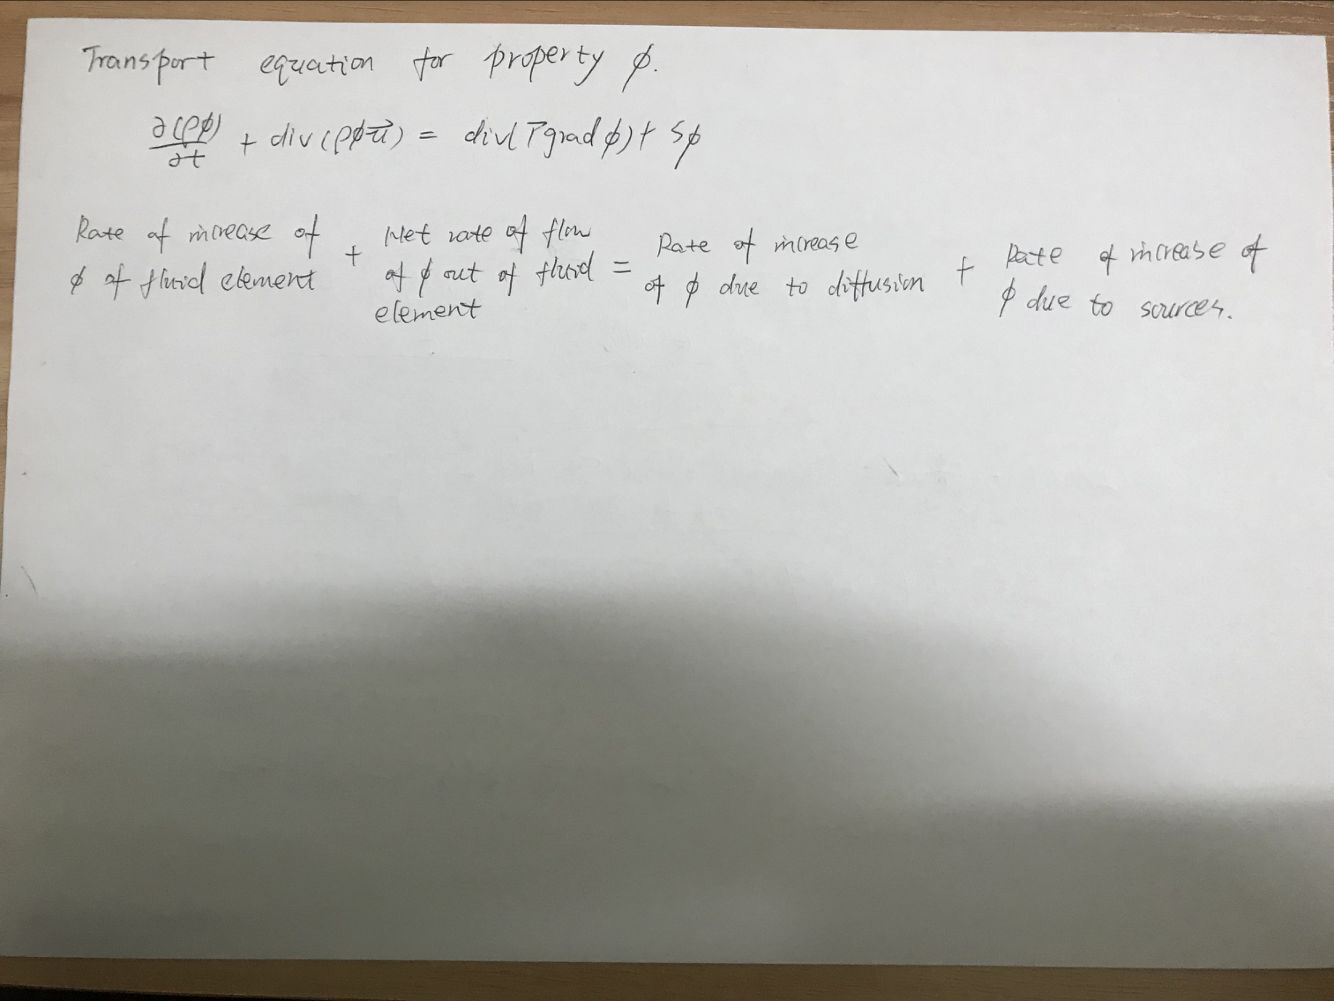 Transport equation for property ϕ.
∂(ρϕ)/∂t + div(ρϕu⃗) = div(Γgrad ϕ) + Sϕ
Rate of increase of ϕ of fluid element + Net rate of flow of ϕ out of fluid element = Rate of increase of ϕ due to diffusion + Rate of increase of ϕ due to sources.